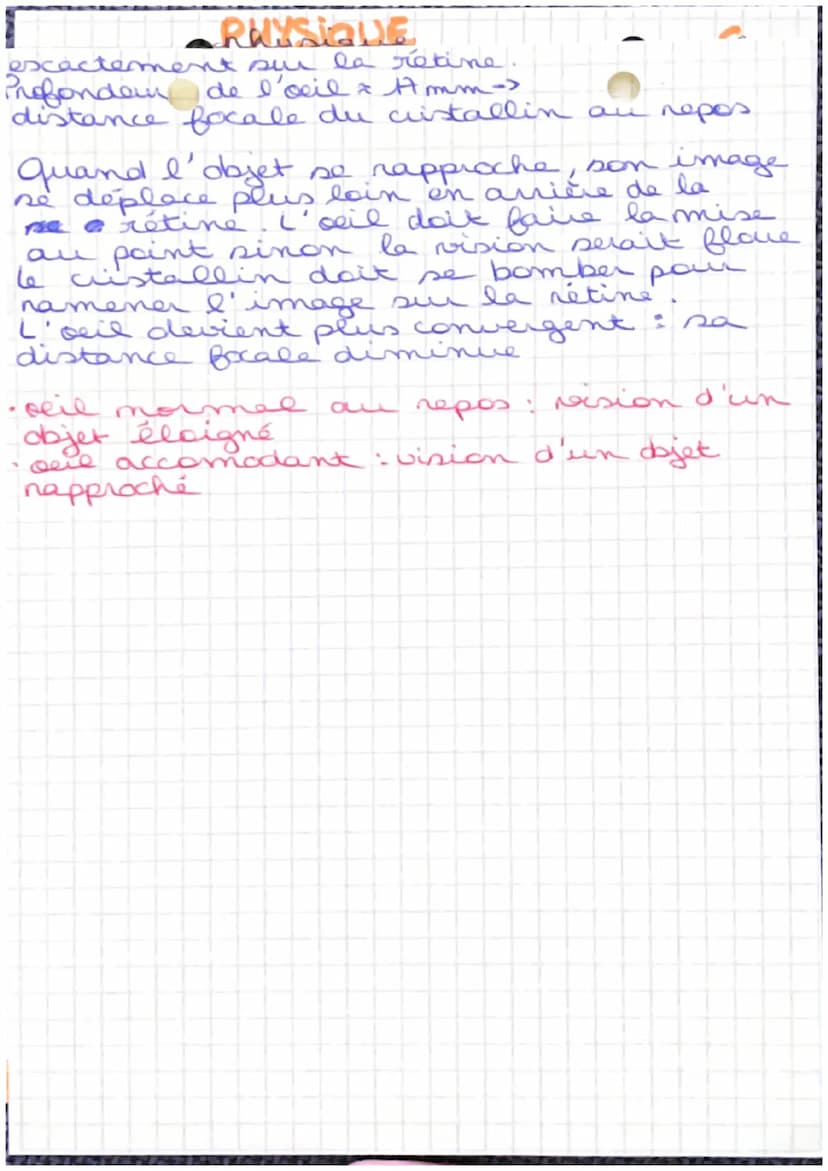 PHYSIQUE
Physique
escactement sur la rétine.
Profondeur de l'oeil ≈ 17 mm ->
distance focale du cristallin au repos
Quand l'objet se rapproche, son image
se déplace plus loin en arrière de la
rétine. L'oeil doit faire la mise
au point sinon la vision serait floue
le cristallin doit se bomber pour
ramener l'image sur la rétine.
L'oeil devient plus convergent : sa
distance focale diminue
· oeil normal au repos : vision d'un
objet éloigné
· oeil accomodant : vision d'un objet
rapproché